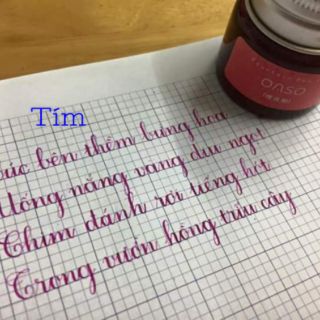 Tím
onso
úc bên thềm bừng hoa
Uống nắng vang dịu ngọt
Chim đánh rơi tiếng hót
Trong vườn hồng trĩu cây